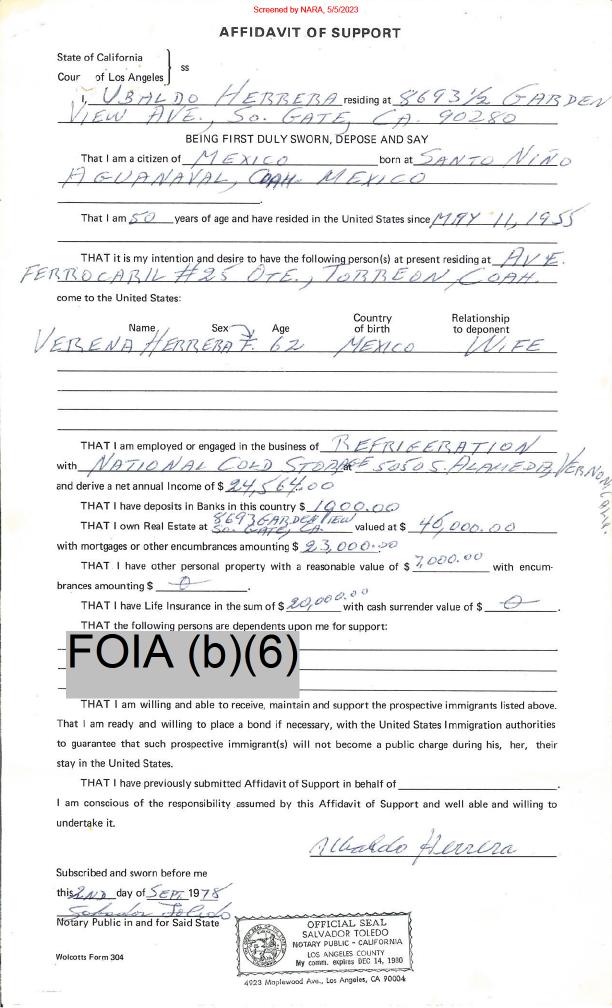 Screened by NARA, 5/5/2023
AFFIDAVIT OF SUPPORT
State of California
Cour of Los Angeles } ss
I, UBALDO HERRERA residing at 8693 1/2 GARDEN
VIEW AVE., SO. GATE, CA. 90280
BEING FIRST DULY SWORN, DEPOSE AND SAY
That I am a citizen of MEXICO born at SANTO NIÑO
AGUANAVAL, COAH. MEXICO
That I am 50 years of age and have resided in the United States since MAY 11, 1955
THAT it is my intention and desire to have the following person(s) at present residing at AVE.
FERROCARIL #25 OTE., TORREON COAH.
come to the United States:
Name Sex Age Country of birth Relationship to deponent
VERENA HERRERA F. 62 MEXICO WIFE
THAT I am employed or engaged in the business of REFRIGERATION
with NATIONAL COLD STORAGE at 5050 S. ALAMEDA, VERNON,
and derive a net annual Income of $ 24,564.00
THAT I have deposits in Banks in this country $ 1000.00
THAT I own Real Estate at 8693 GARDEN VIEW SO. GATE, CA. valued at $ 46,000.00
with mortgages or other encumbrances amounting $ 23,000.00
THAT I have other personal property with a reasonable value of $ 7,000.00 with encum-
brances amounting $ 0 .
THAT I have Life Insurance in the sum of $ 20,000.00 with cash surrender value of $ 0 .
THAT the following persons are dependents upon me for support:
FOIA (b)(6)
THAT I am willing and able to receive, maintain and support the prospective immigrants listed above.
That I am ready and willing to place a bond if necessary, with the United States Immigration authorities
to guarantee that such prospective immigrant(s) will not become a public charge during his, her, their
stay in the United States.
THAT I have previously submitted Affidavit of Support in behalf of
I am conscious of the responsibility assumed by this Affidavit of Support and well able and willing to
undertake it.
Ubaldo Herrera
Subscribed and sworn before me
this 2ND day of SEPT. 1978
Salvador Toledo
Notary Public in and for Said State
OFFICIAL SEAL
SALVADOR TOLEDO
NOTARY PUBLIC - CALIFORNIA
LOS ANGELES COUNTY
My comm. expires DEC 14, 1980
Wolcotts Form 304
4923 Maplewood Ave., Los Angeles, CA 90004